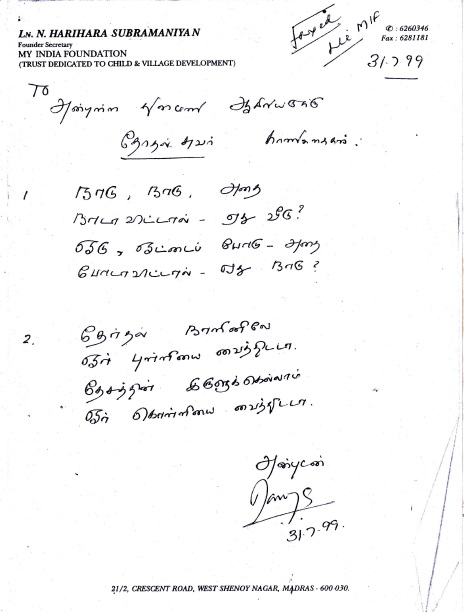 LN. N. HARIHARA SUBRAMANIYAN
Founder Secretary
MY INDIA FOUNDATION
(TRUST DEDICATED TO CHILD & VILLAGE DEVELOPMENT)
faxed
✆ : 6260346
Fax : 6281181
31.7.99
TO
அன்புள்ள தினமணி ஆசிரியருக்கு
தேர்தல்
1 நாடு, நாடு, அதை
நாடாவிட்டால் - ஏது வீடு?
ஓடு, ஓட்டைப் போடு - அதை
போடாவிட்டால் - ஏது நாடு?
2. தேர்தல் நாளினிலே
ஓர் புள்ளியை வைத்திடடா.
தேசத்தின் இருளுக்கெல்லாம்
ஓர் கொள்ளியை வைத்திடடா.
அன்புடன்
31.7.99.
21/2, CRESCENT ROAD, WEST SHENOY NAGAR, MADRAS - 600 030.